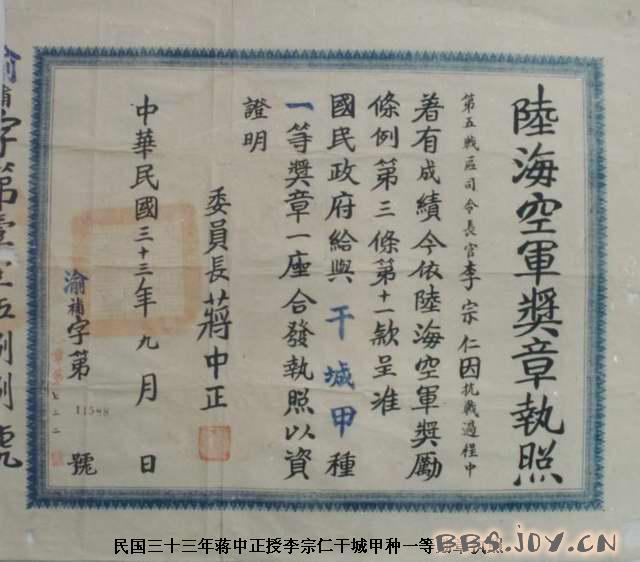 陸海空軍獎章執照
第五戰區司令長官李宗仁因抗戰過程中
著有成績今依陸海空軍獎勵
條例第三條第十一款呈准
國民政府給與干城甲種
一等獎章一座合發執照以資
證明
委員長蔣中正
中華民國三十三年九月 日
渝補字第11588號
渝補字第壹壹伍捌捌號
民国三十三年蒋中正授李宗仁干城甲种一等
BBS.JOY.CN